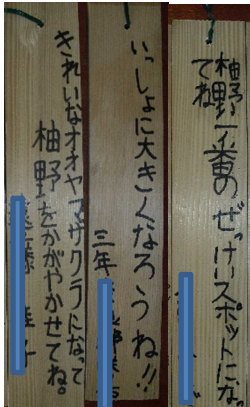 柚野一番のぜっけいスポットになっ
てね
いっしょに大きくなろうね!!
三年
きれいなオオヤマザクラになって
柚野をかがやかせてね。